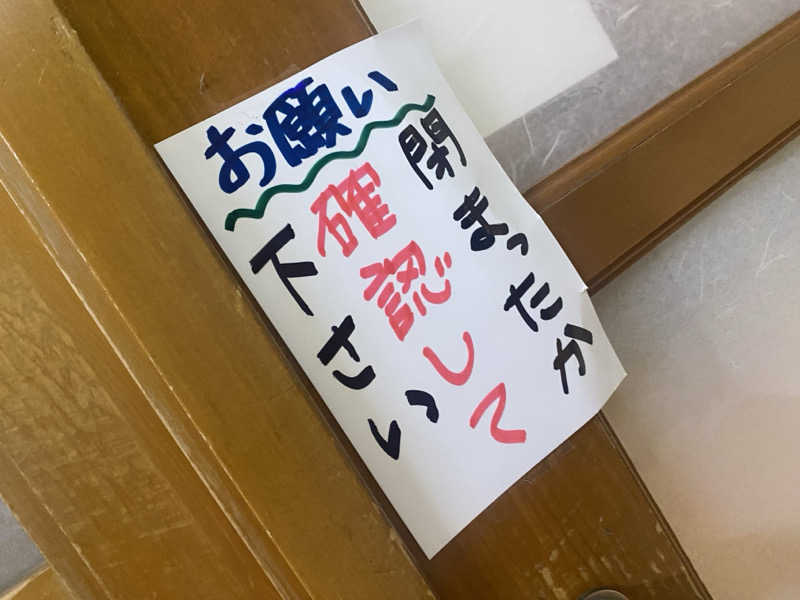 お願い
閉まったか
確認して
下さい